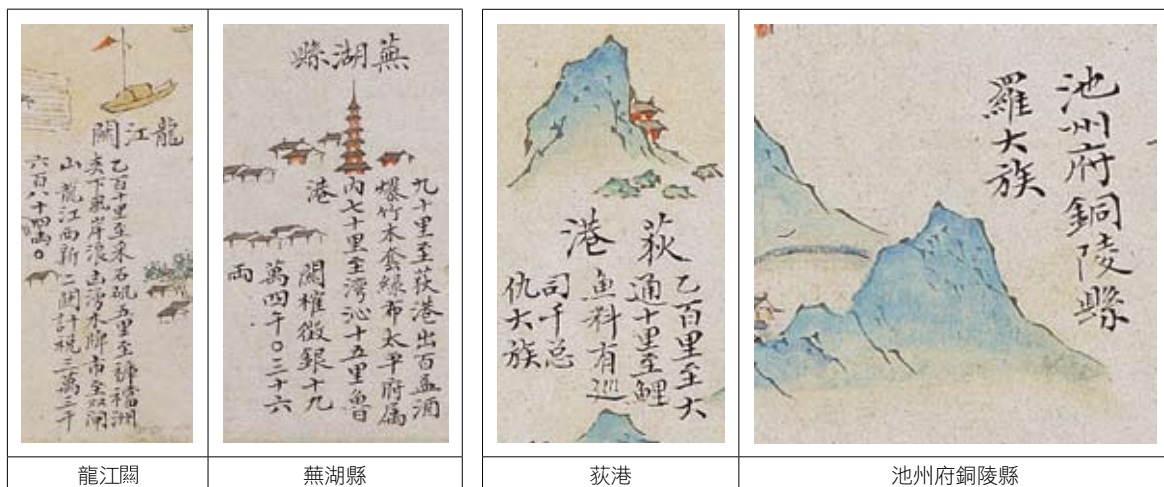 龍江關
乙百十里至采石磯五里至褲襠洲
夾下風岸浪凶湾木牌市至双闸
山龍江西新二關計税三萬三千
六百八十四両○
蕪湖縣
九十里至荻港出百益酒
爆竹木套緑布太平府属
内七十里至湾沁十五里魯
港
關榷徵銀十九
萬四千○三十六
両
荻港
乙百里至大
通十里至鯉
魚料有巡
司千总
仇大族
池州府銅陵縣
羅大族
龍江關
蕪湖縣
荻港
池州府銅陵縣